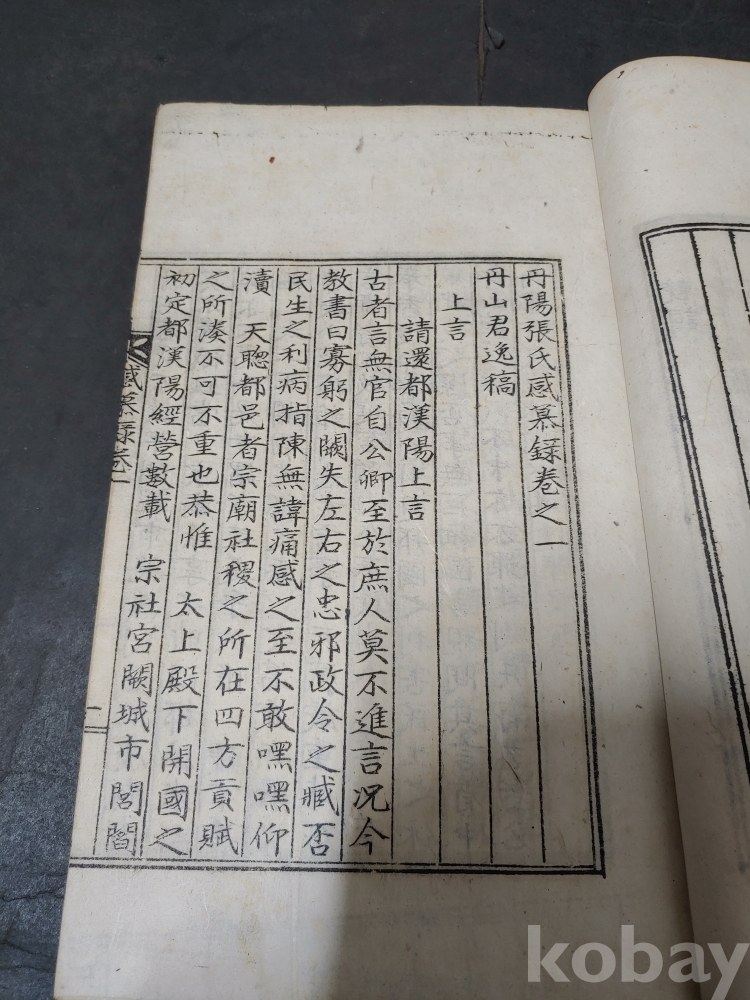 丹陽張氏感慕録卷之一
丹山君逸稿
上言
請還都漢陽上言
古者言無官自公卿至於庶人莫不進言况今
教書曰寡躬之闕失左右之忠邪政令之臧否
民生之利病指陳無諱痛感之至不敢嘿嘿仰
瀆 天聦都邑者宗廟社稷之所在四方貢賦
之所湊不可不重也恭惟 太上殿下開國之
初定都漢陽經營數載 宗社宮闕城市閭閻
感慕録卷一
二
kobay